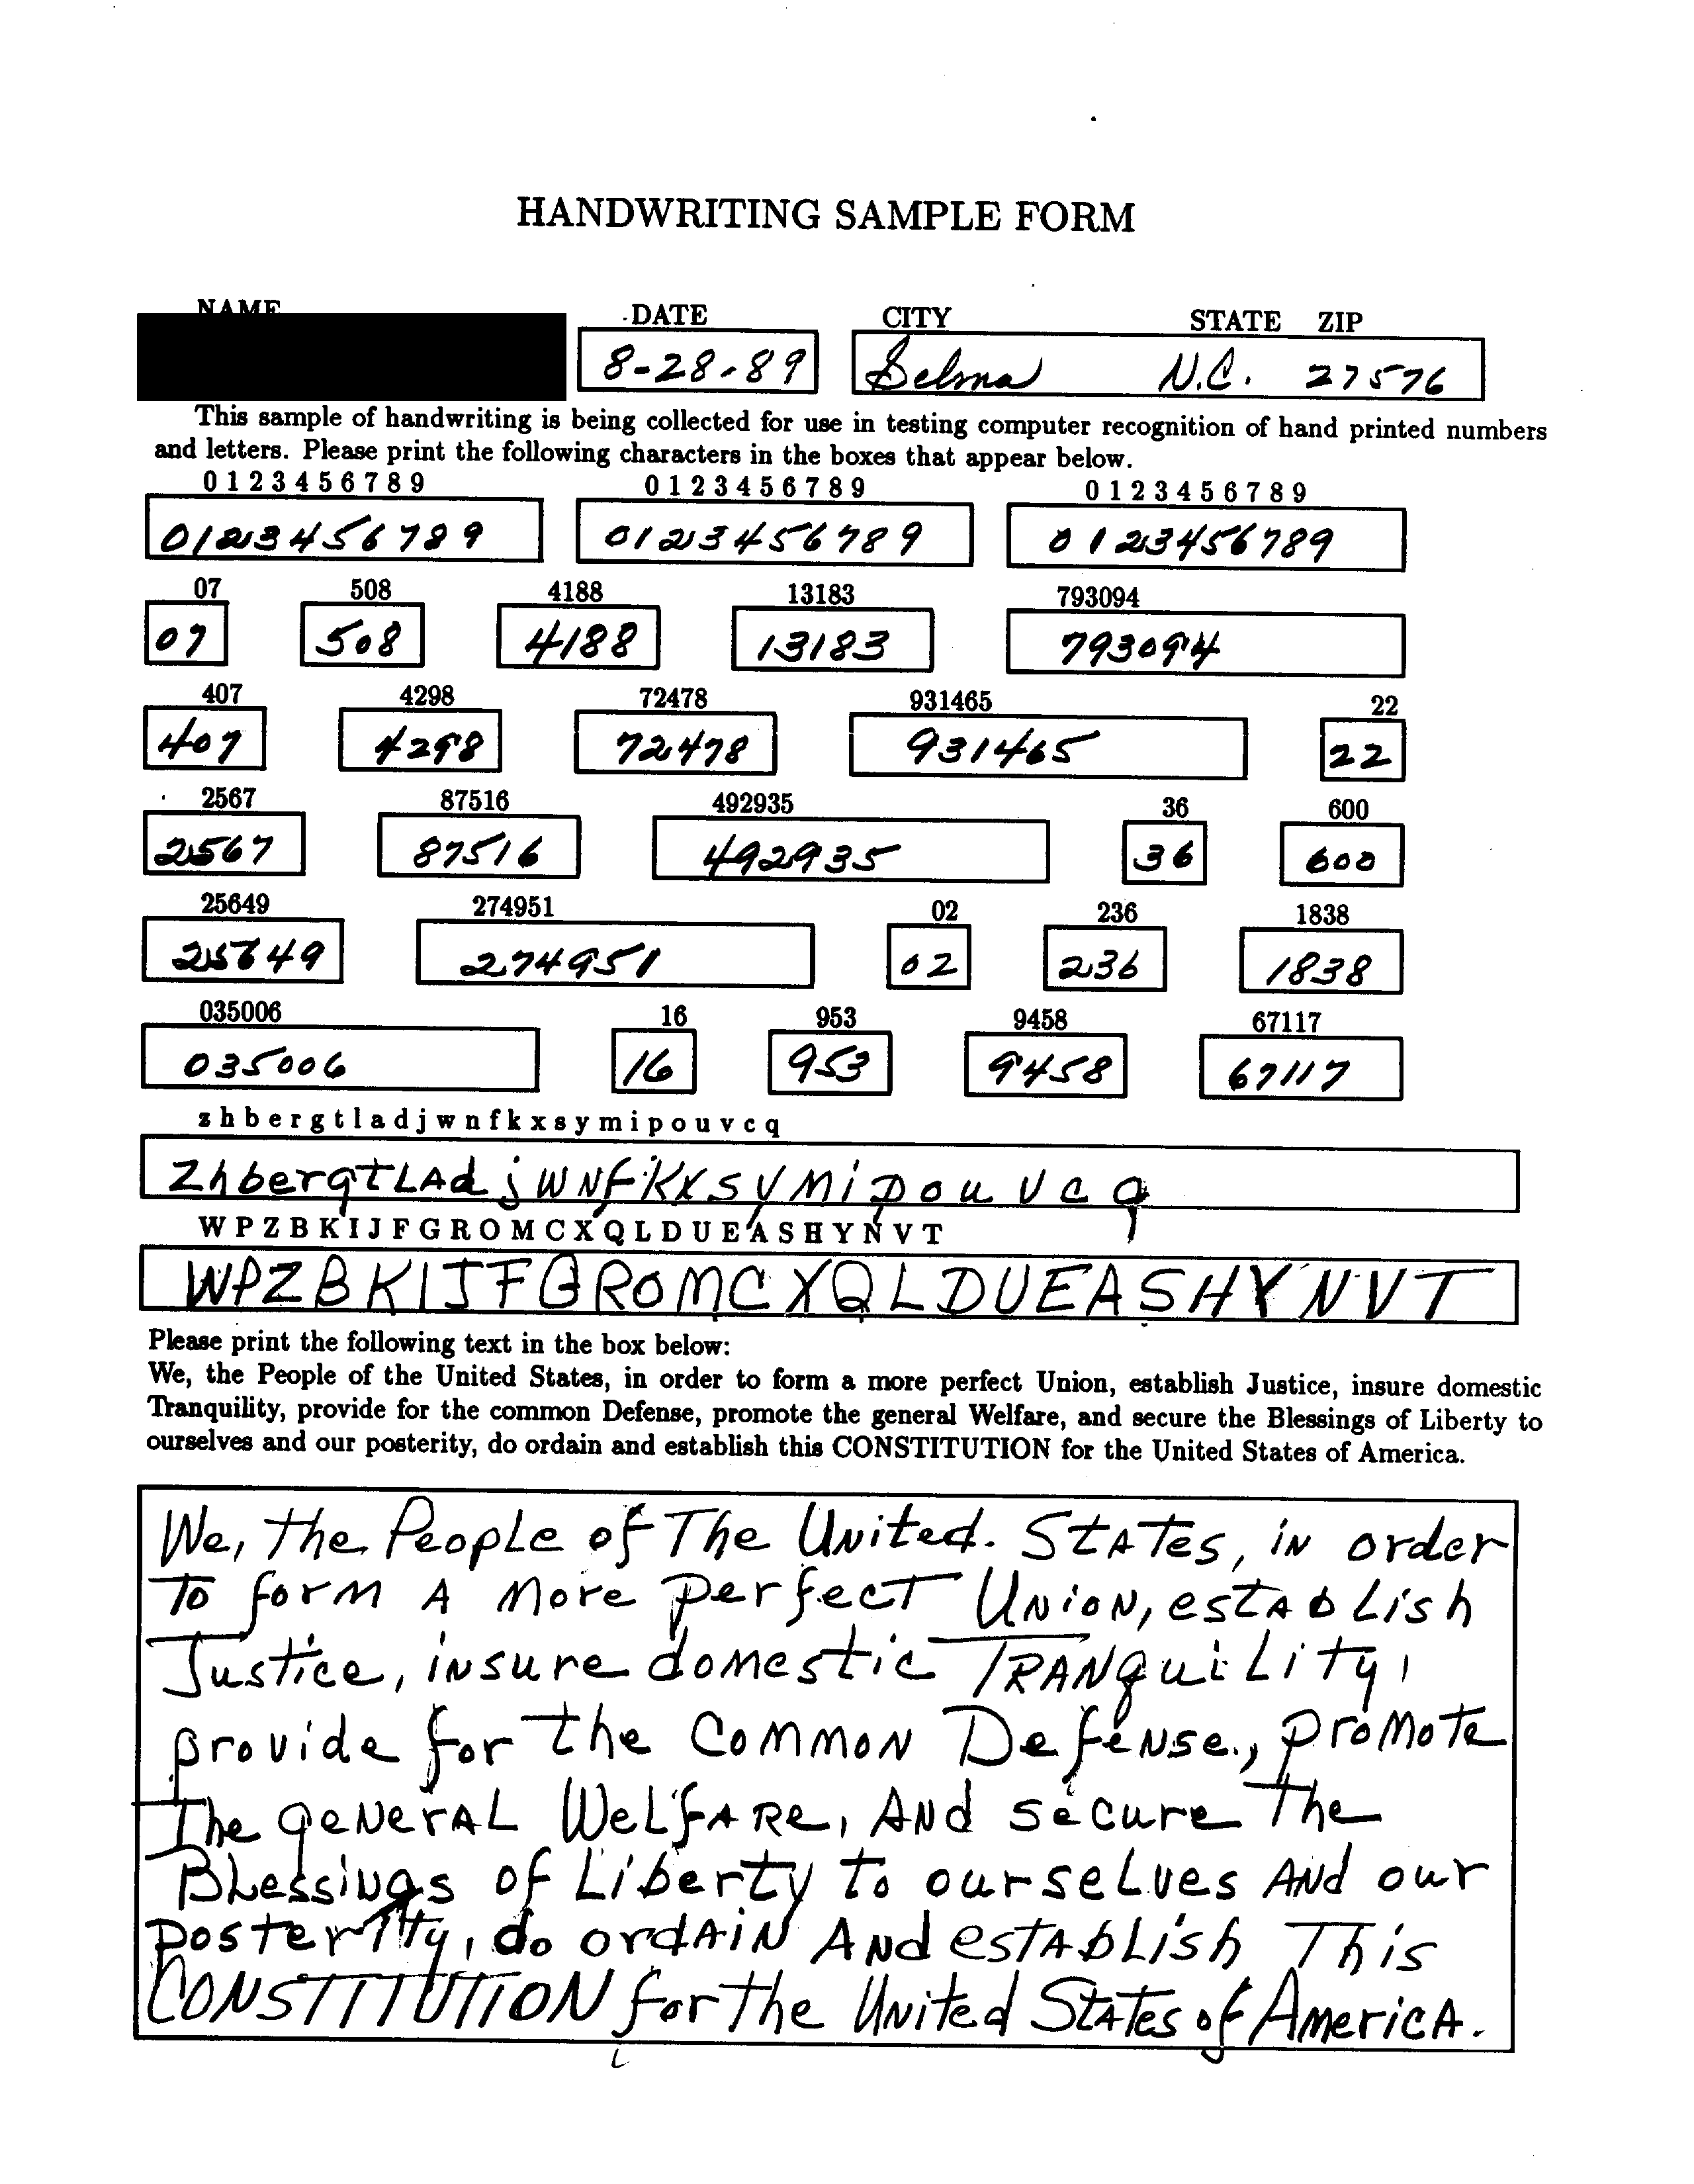 HANDWRITING SAMPLE FORM
NAME DATE CITY STATE ZIP
8-28-89 Selma N.C. 27576
This sample of handwriting is being collected for use in testing computer recognition of hand printed numbers
and letters. Please print the following characters in the boxes that appear below.
0 1 2 3 4 5 6 7 8 9 0 1 2 3 4 5 6 7 8 9 0 1 2 3 4 5 6 7 8 9
0123456789 0123456789 0123456789
07 508 4188 13183 793094
07 508 4188 13183 793094
407 4298 72478 931465 22
407 4298 72478 931465 22
2567 87516 492935 36 600
2567 87516 492935 36 600
25649 274951 02 236 1838
25649 274951 02 236 1838
035006 16 953 9458 67117
035006 16 953 9458 67117
z h b e r g t l a d j w n f k x s y m i p o u v c q
ZhbergtLAdjWNfKXSYMipouvcq
W P Z B K I J F G R O M C X Q L D U E A S H Y N V T
WPZBKIJFGROMCXQLDUEASHYNVT
Please print the following text in the box below:
We, the People of the United States, in order to form a more perfect Union, establish Justice, insure domestic
Tranquility, provide for the common Defense, promote the general Welfare, and secure the Blessings of Liberty to
ourselves and our posterity, do ordain and establish this CONSTITUTION for the United States of America.
We, the PeopLe of The UNited. StATes, iN order
To forM A More perfecT UNioN, estAbLish
Justice, iNsure doMestic TRANquiLity,
provide for the CoMMoN DefeNse., proMoTe
The geNerAL WeLfARe, ANd secure The
BLessiNgs of Liberty to ourseLves ANd our
posterity, do ordAiN ANd estAbLish This
CONSTITUTION for the UNited StATes of AMericA.